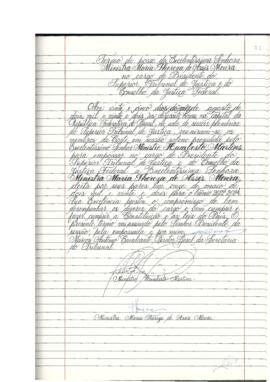 Termo de posse da Excelentíssima Senhora
Ministra Maria Thereza de Assis Moura
no cargo de Presidente do
Superior Tribunal de Justiça e do
Conselho da Justiça Federal
Aos vinte e cinco dias do mês de agosto de
dois mil e vinte e dois, às horas, na capital da
República Federativa do Brasil, na sala de sessões plenárias
do Superior Tribunal de Justiça, reuniram-se os
membros da Corte em sessão solene presidida pelo
Excelentíssimo Senhor Ministro Humberto Martins
para empossar no cargo de Presidente do
Superior Tribunal de Justiça e do Conselho da
Justiça Federal a Excelentíssima Senhora
Ministra Maria Thereza de Assis Moura,
eleita por seus pares em onze de maio de
dois mil e vinte e dois para o biênio 2022-2024.
Sua Excelência prestou o compromisso de bem
desempenhar os deveres do cargo e bem cumprir e
fazer cumprir a Constituição e as leis do País. O
presente termo vai assinado pelo Senhor Presidente da
sessão, pela empossada e por mim,
Cavalcante da Secretaria
do Tribunal.
Ministro Humberto Martins
Ministra Maria Thereza de Assis Moura